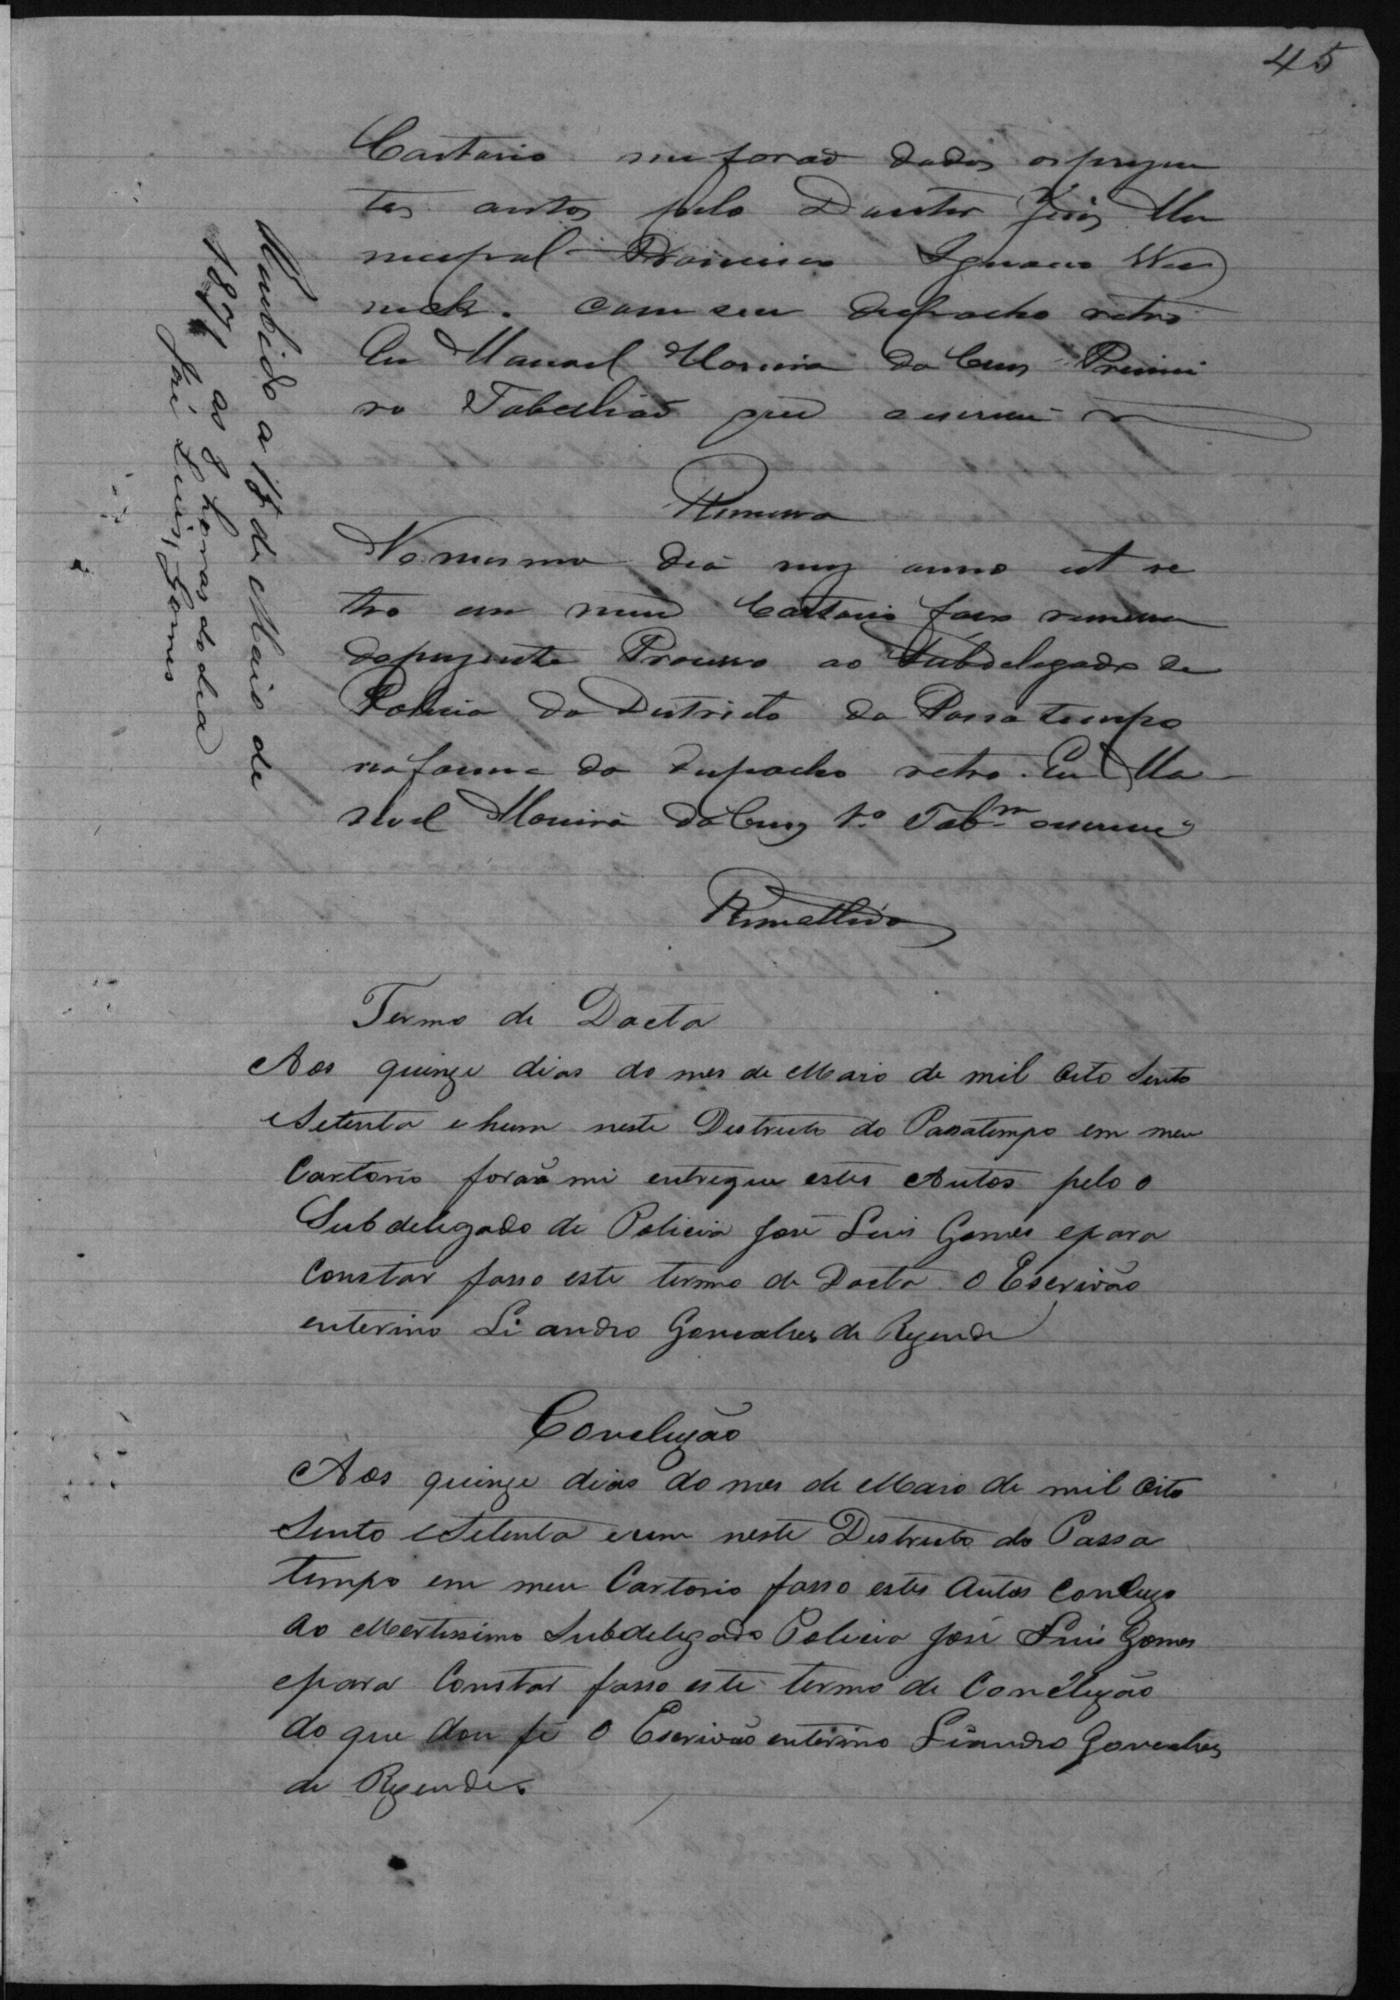 45
Cartorio me forão dados os prezen
tes autos pelo Doutor Juis Mu
nicipal Francisco Ignacio Wer
neck. com seu despacho retro
Eu Manoel Moreira da Cruz Primei
ro Tabellião que escrevi
Remessa
No mesmo dia mez anno ut re
tro em meu Cartorio faço remessa
do prezente Processo ao Subdelegado de
Policia do Districto do Passa tempo
na forma do despacho retro. Eu Ma
noel Moreira da Cruz 1º Tabm escrevi
Remettido
Recebido a 15 de Maio de
1871 as 8 horas do dia
José Luis Gomes
Termo de Dacta
Aos quinze dias do mes de Maio de mil oito Sento
e Setenta e hum neste Destricto do Pasatempo em meu
Cartorio forão mi entregue estes Autos pelo o
Subdelegado de Policia José Luis Gomes epara
Constar fasso este termo de Dacta O Escrivão
enterino Liandro Goncalves de Rezende
Concluzão
Aos quinze dias do mes de Maio de mil oito
Sento e Setenta e um neste Destricto do Passa
tempo em meu Cartorio fasso estes Autos Concluzo
Ao Mertissimo Subdelegado Policia José Luis Gomes
epara Constar fasso este termo de Concluzão
do que dou fé O Escrivão enterino Liandro Goncalves
de Rezende.